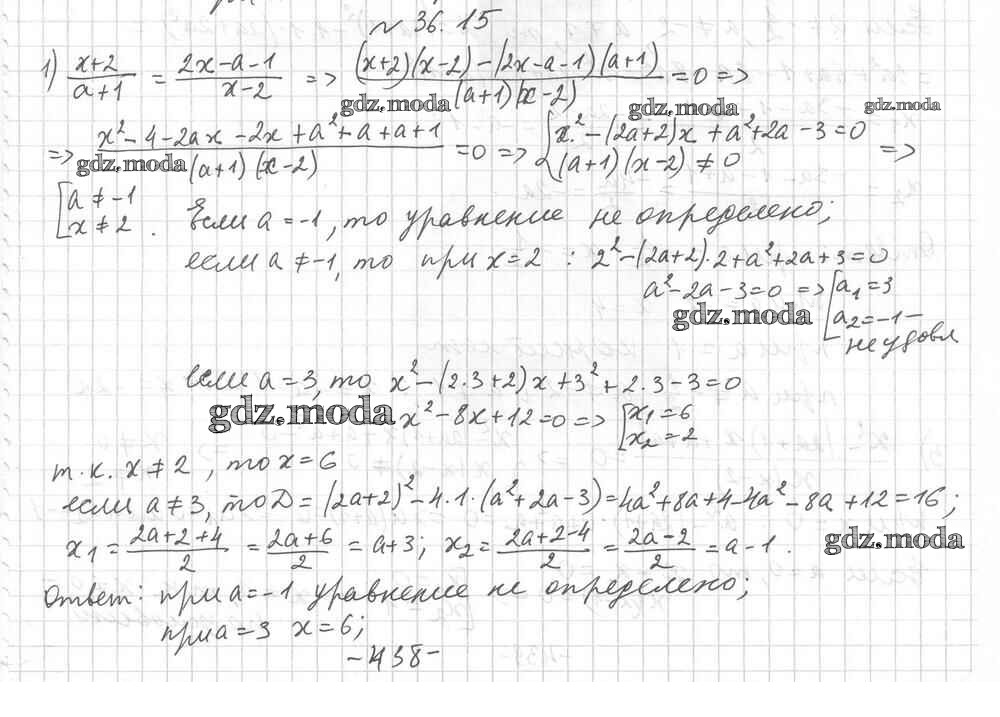 № 36.15
1) (x+2)/(a+1) = (2x-a-1)/(x-2) => ((x+2)(x-2)-(2x-a-1)(a+1))/((a+1)(x-2)) = 0 =>
gdz.moda gdz.moda gdz.moda
=> (x²-4-2ax-2x+a²+a+a+1)/((a+1)(x-2)) = 0 => { x²-(2a+2)x+a²+2a-3=0 (a+1)(x-2)≠0 =>
gdz.moda
[ a≠-1 x≠2 . Если a=-1, то уравнение не определено;
если a≠-1, то при x=2 : 2²-(2a+2)·2+a²+2a+3=0
a²-2a-3=0 => [ a₁=3 a₂=-1 - не удовл
gdz.moda
если a=3, то x²-(2·3+2)x+3²+2·3-3=0
gdz.moda x²-8x+12=0 => [ x₁=6 x₂=2
т.к. x≠2, то x=6
если a≠3, то D=(2a+2)²-4·1·(a²+2a-3)=4a²+8a+4-4a²-8a+12=16;
x₁=(2a+2+4)/2=(2a+6)/2=a+3; x₂=(2a+2-4)/2=(2a-2)/2=a-1. gdz.moda
Ответ: при a=-1 уравнение не определено;
при a=3 x=6;
-438-